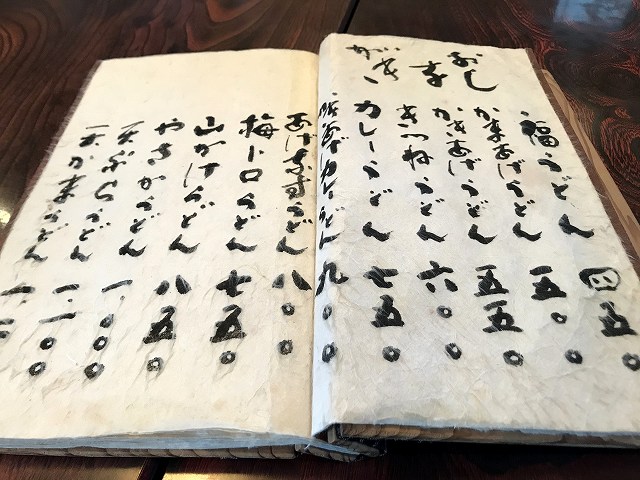 おしながき
福うどん 四五〇
かまあげうどん 五〇〇
かきあげうどん 五五〇
きつねうどん 六〇〇
カレーうどん 七五〇
カレーうどん 九〇〇
あげなすうどん 八〇〇
梅トロうどん 七五〇
山かけうどん 八五〇
うどん 一.〇〇
天ぷらうどん 一.一〇〇
天かまうどん